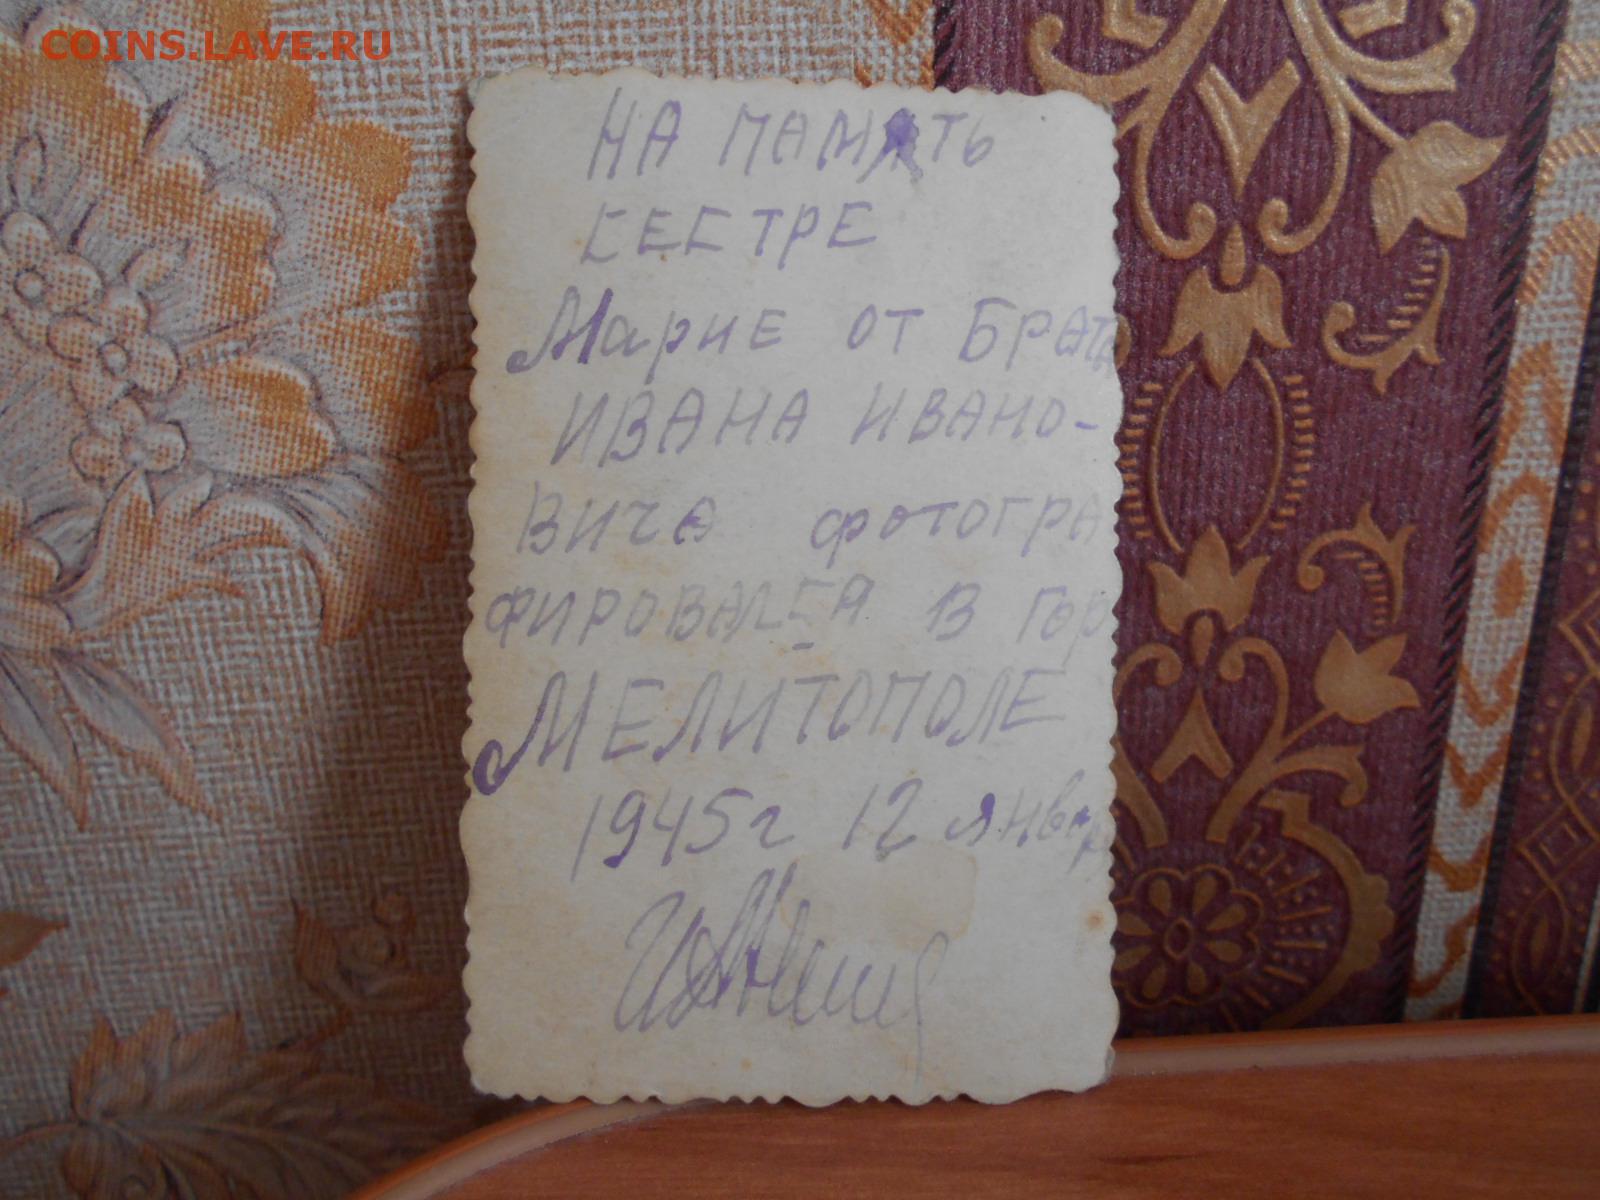 COINS.LAVE.RU
НА ПАМЯТЬ
СЕСТРЕ
Марие от Брата
ИВАНА ИВАНО-
ВИЧА фотогра
ФИРОВАЛСЯ В ГОР
МЕЛИТОПОЛЕ
1945г 12 январ